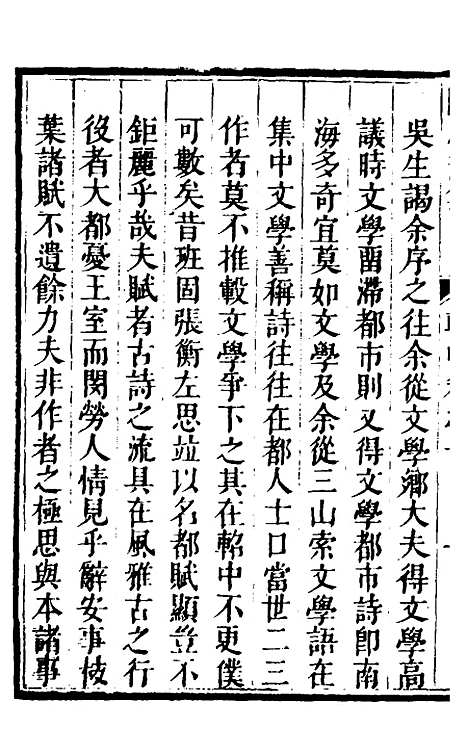 吳生謁余序之往余從文學鄉大夫得文學高
議時文學畱滯都市則又得文學都市詩卽南
海多奇宜莫如文學及余從三山索文學語在
集中文學善稱詩往往在都人士口當世二三
作者莫不推轂文學爭下之其在軺中不更僕
可數矣昔班固張衡左思竝以名都賦顯豈不
鉅麗乎哉夫賦者古詩之流具在風雅古之行
役者大都憂王室而閔勞人情見乎辭安事枝
葉諸賦不遺餘力夫非作者之極思與本諸事